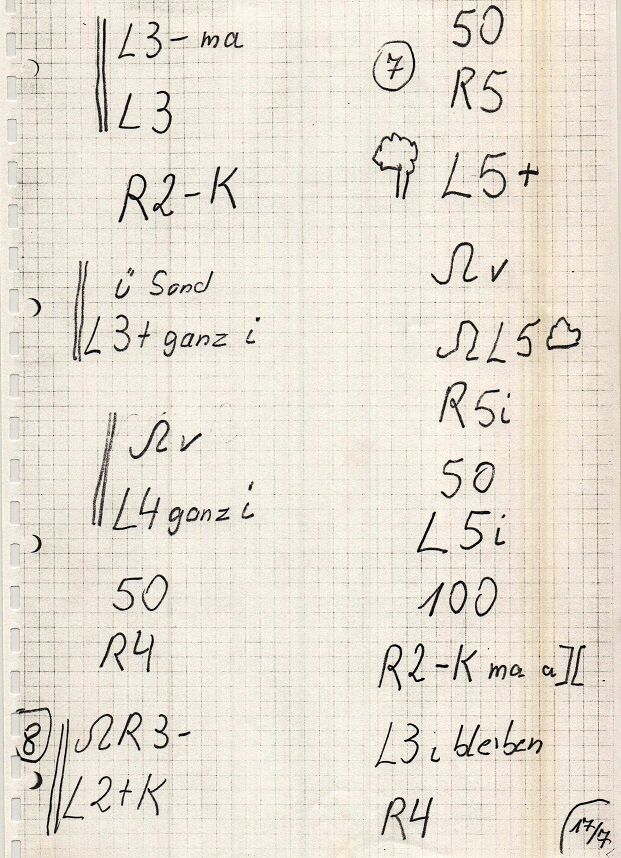 L3- ma
L3
R2-K
ü Sand
L3+ ganz i
Ω v
L4 ganz i
50
R4
8
ΩR3-
L2+K
50
7
R5
L5+
Ω v
ΩL5
R5i
50
L5i
100
R2-K ma a][
L3 i bleiben
R4
17/7